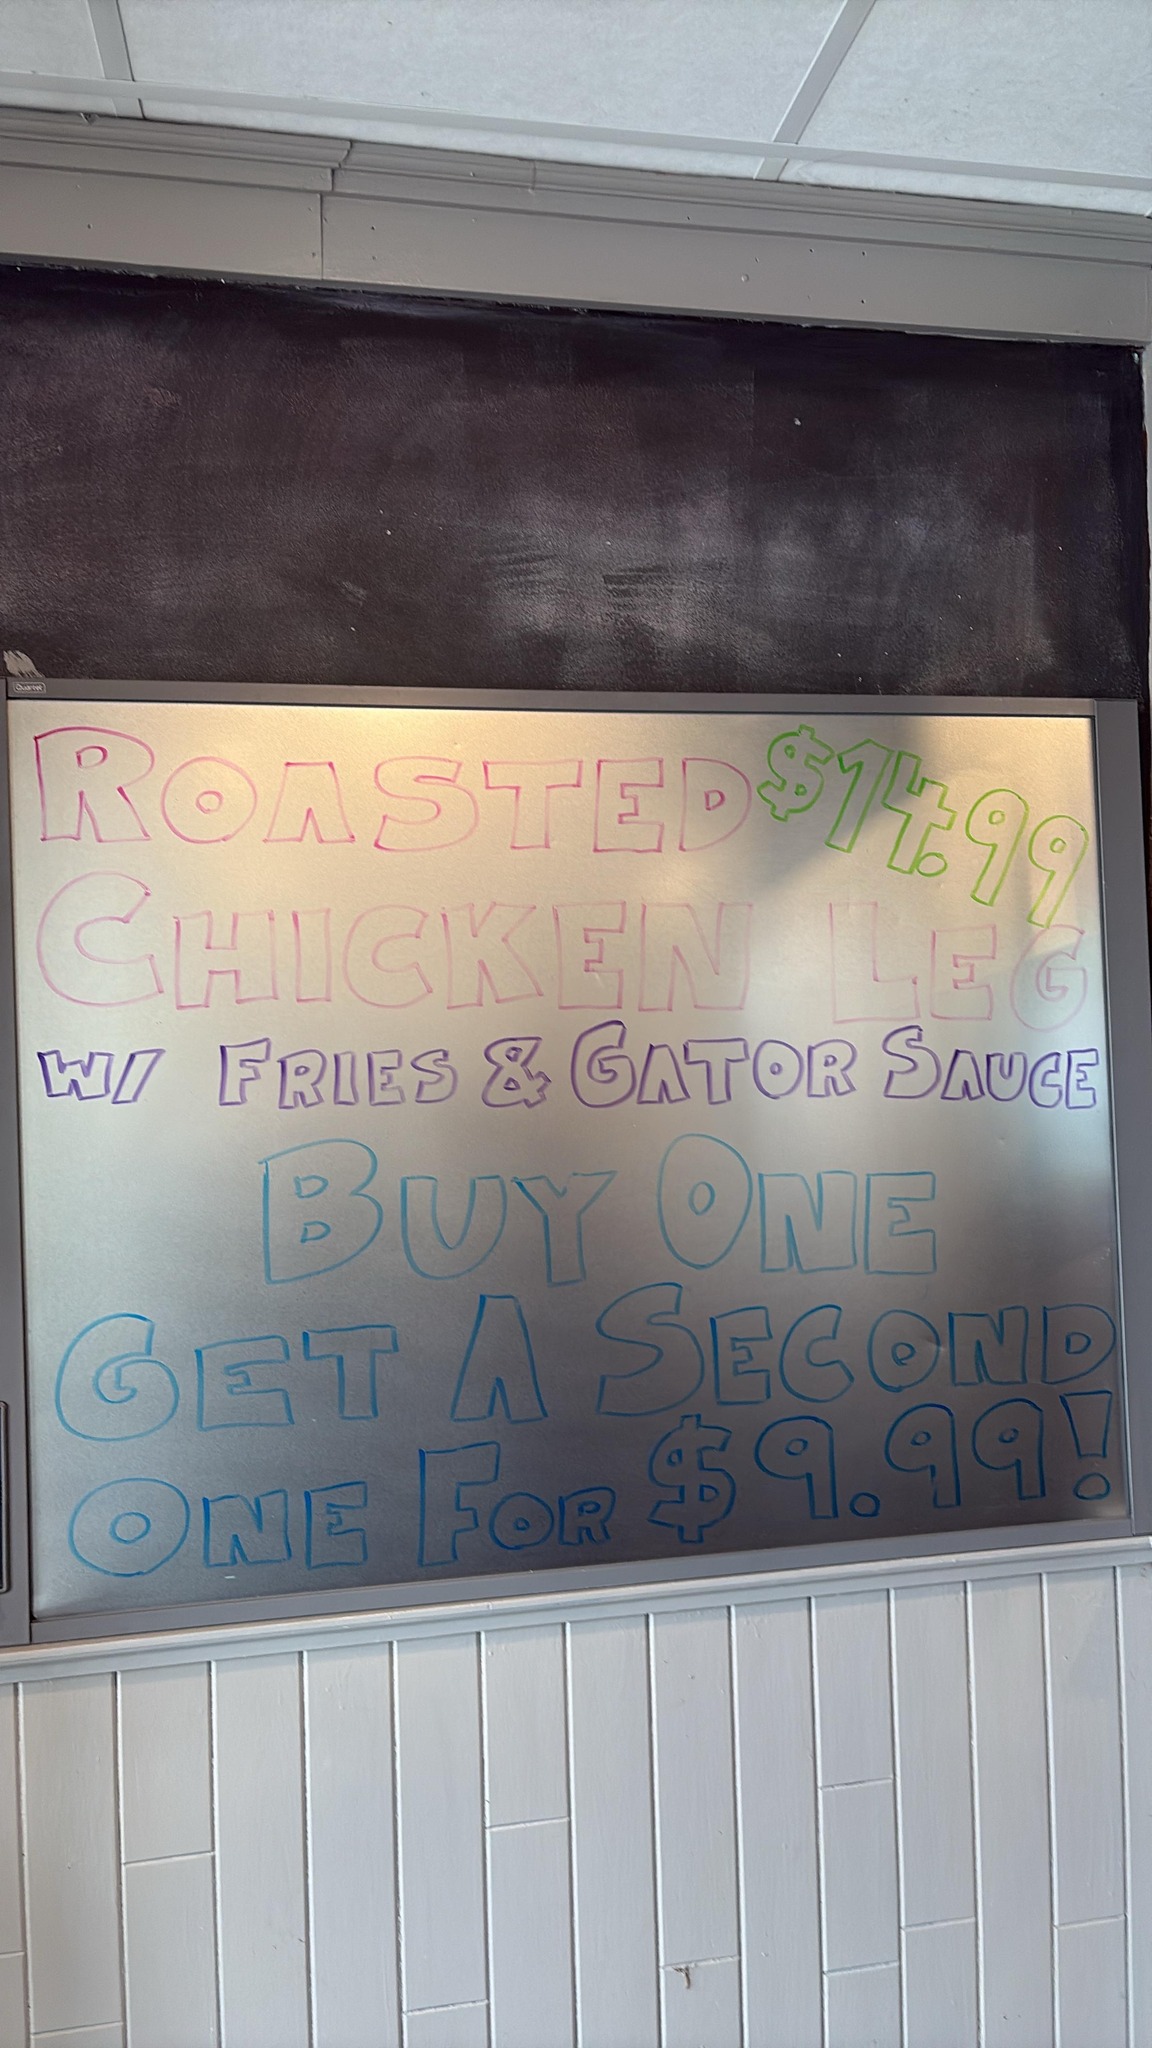 Quartet
ROASTED $14.99
CHICKEN LEG
W/ FRIES & GATOR SAUCE
BUY ONE
GET A SECOND
ONE FOR $9.99!